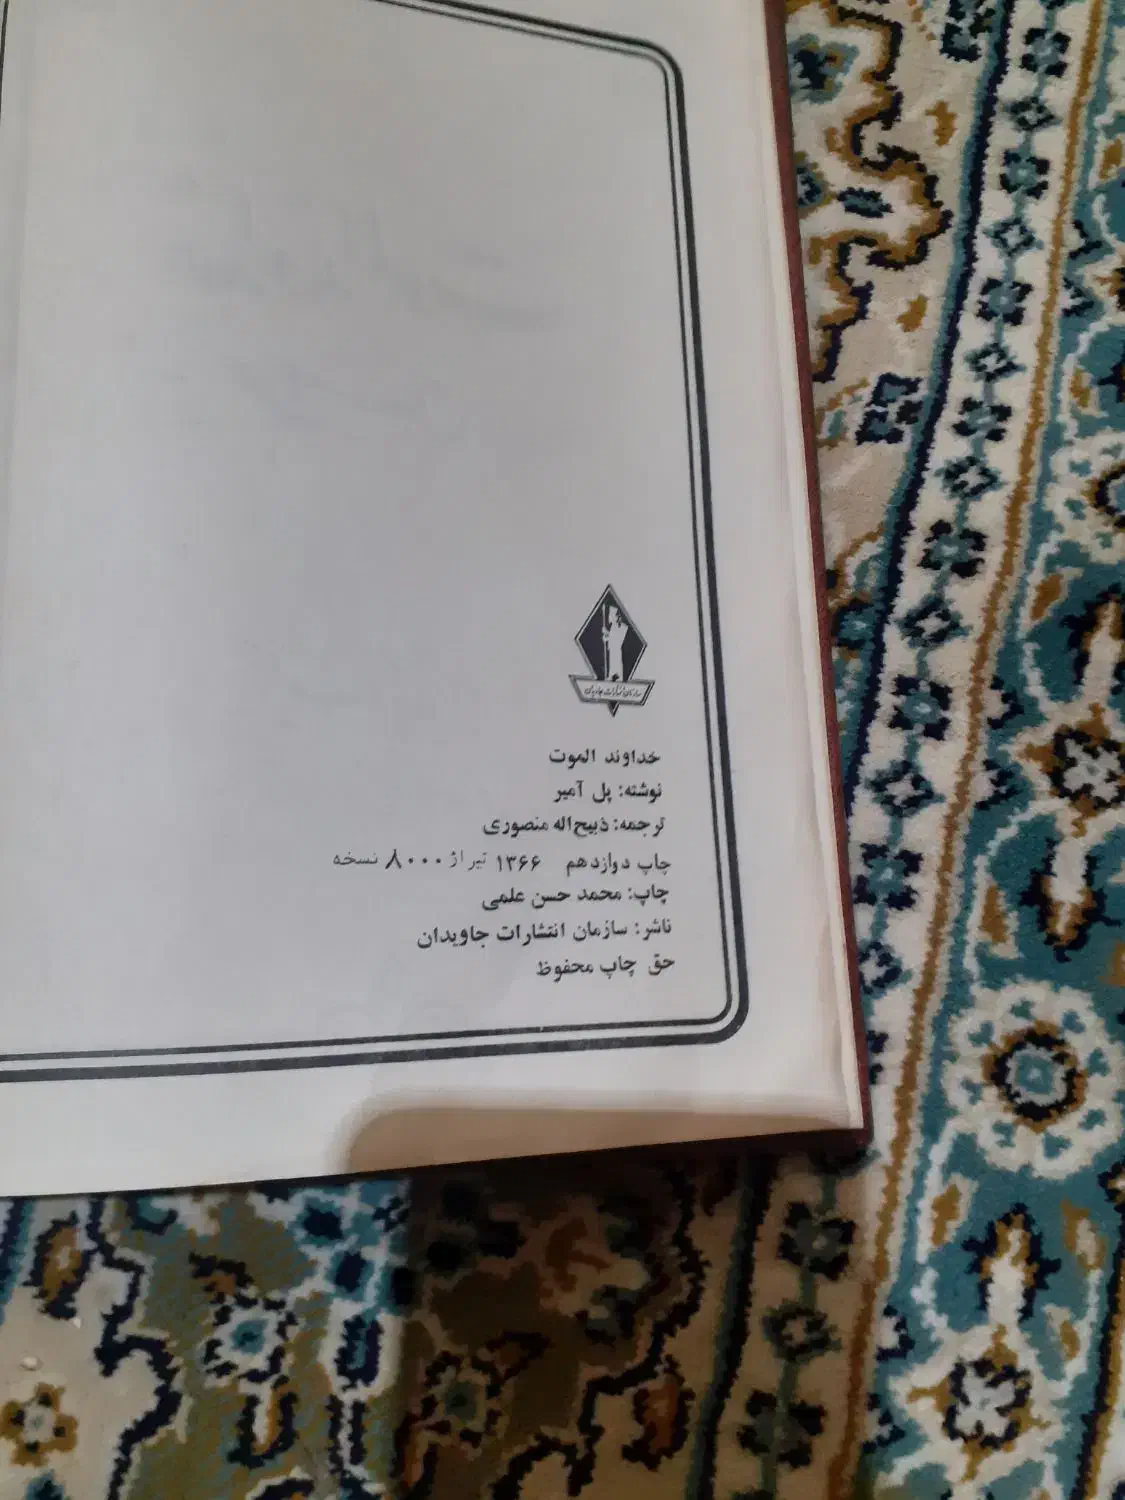 سازمان انتشارات جاویدان
خداوند الموت
نوشته: پل آمیر
ترجمه: ذبیح‌اله منصوری
چاپ دوازدهم ۱۳۶۶ تیراژ ۸۰۰۰ نسخه
چاپ: محمد حسن علمی
ناشر: سازمان انتشارات جاویدان
حق چاپ محفوظ